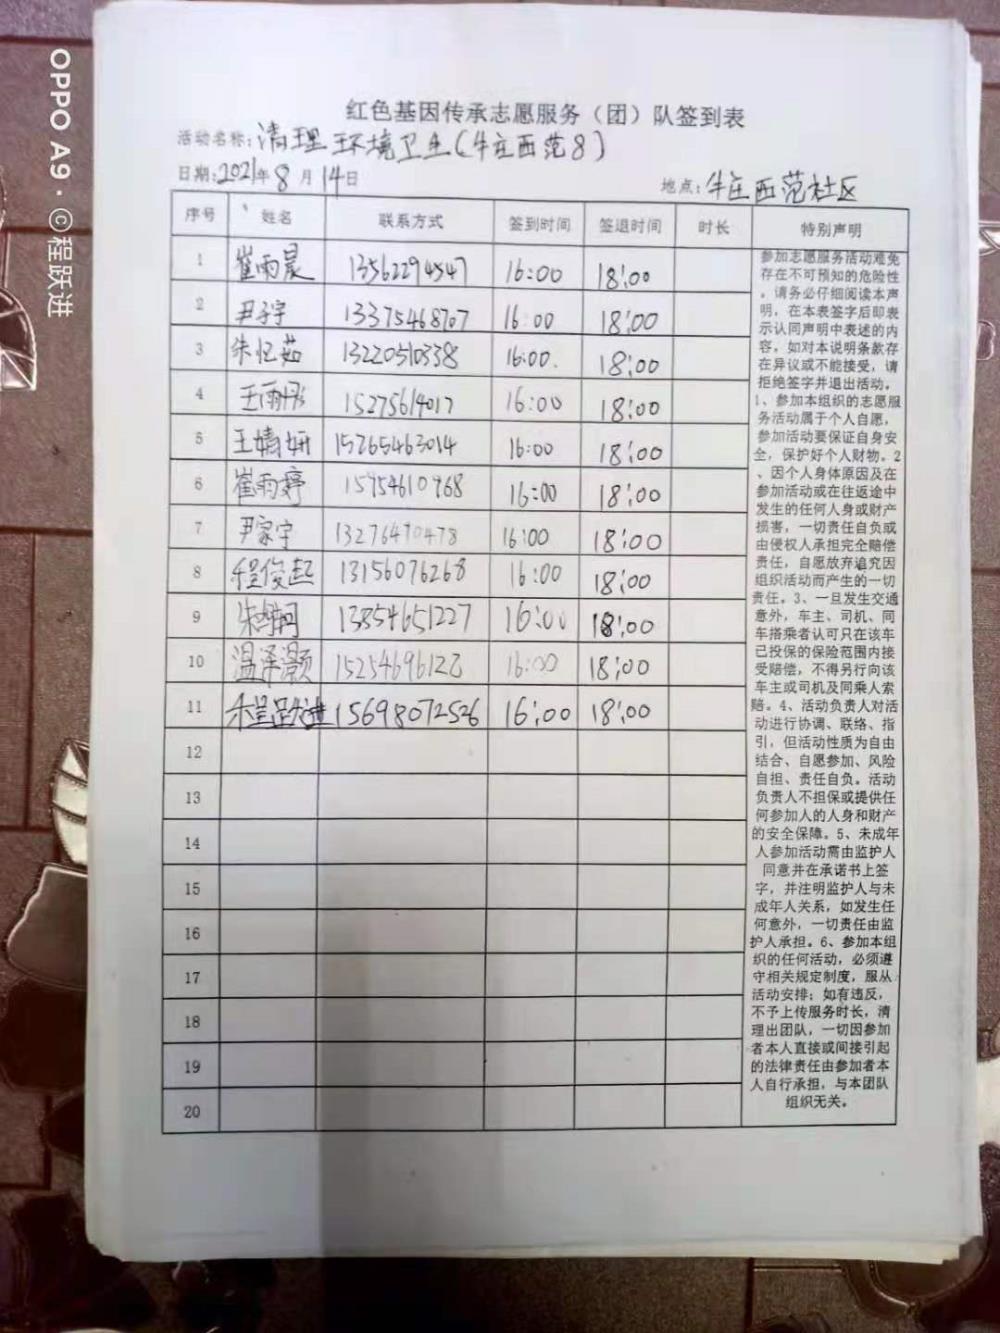 红色基因传承志愿服务（团）队签到表
活动名称：清理环境卫生(牛庄西范8)
日期：2021年8月14日 地点：牛庄西范社区
序号 姓名 联系方式 签到时间 签退时间 时长 特别声明
1 崔雨晨 13562294547 16:00 18:00
2 尹子宇 13375468707 16:00 18:00
3 朱忆茹 13220510338 16:00. 18:00
4 王雨彤 15275614017 16:00 18:00
5 王婧妍 15265463014 16:00 18:00
6 崔雨婷 16:00 18:00
7 尹家宇 16:00 18:00
8 程俊起 13156076268 16:00 18:00
9 13854651227 16:00 18:00
10 温泽灏 16:00 18:00
11 程跃进 15698072526 16:00 18:00
12
13
14
15
16
17
18
19
20
参加志愿服务活动难免
存在不可预知的危险性
，请务必仔细阅读本声
明，在本表签字后即表
示认同声明中表述的内
容。如对本说明条款存
在异议或不能接受，请
拒绝签字并退出活动。
1、参加本组织的志愿服
务活动属于个人自愿，
参加活动要保证自身安
全，保护好个人财物。2
、因个人身体原因及在
参加活动或在往返途中
发生的任何人身或财产
损害，一切责任自负或
由侵权人承担完全赔偿
责任，自愿放弃追究因
组织活动而产生的一切
责任。3、一旦发生交通
意外，车主、司机、同
车搭乘者认可只在该车
已投保的保险范围内接
受赔偿，不得另行向该
车主或司机及同乘人索
赔。4、活动负责人对活
动进行协调、联络、指
引，但活动性质为自由
结合、自愿参加、风险
自担、责任自负。活动
负责人不担保或提供任
何参加人的人身和财产
的安全保障。5、未成年
人参加活动需由监护人
同意并在承诺书上签
字，并注明监护人与未
成年人关系，如发生任
何意外，一切责任由监
护人承担。6、参加本组
织的任何活动，必须遵
守相关规定制度，服从
活动安排；如有违反，
不予上传服务时长，清
理出团队，一切因参加
者本人直接或间接引起
的法律责任由参加者本
人自行承担，与本团队
组织无关。
OPPO A9 · ©程跃进